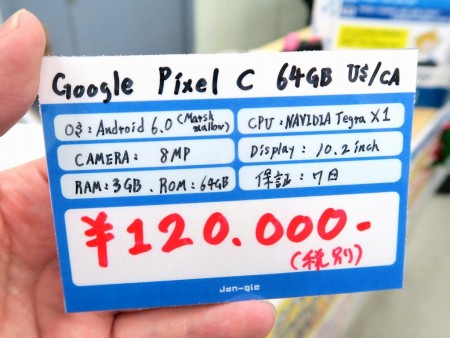 Google Pixel C 64GB US/CA
OS:Android 6.0 (Marsh mallow)
CPU:NAVIDIA Tegra X1
CAMERA: 8MP
Display:10.2inch
RAM:3GB、ROM:64GB
保証:7日
¥120.000-
(税別)
Jan-gle